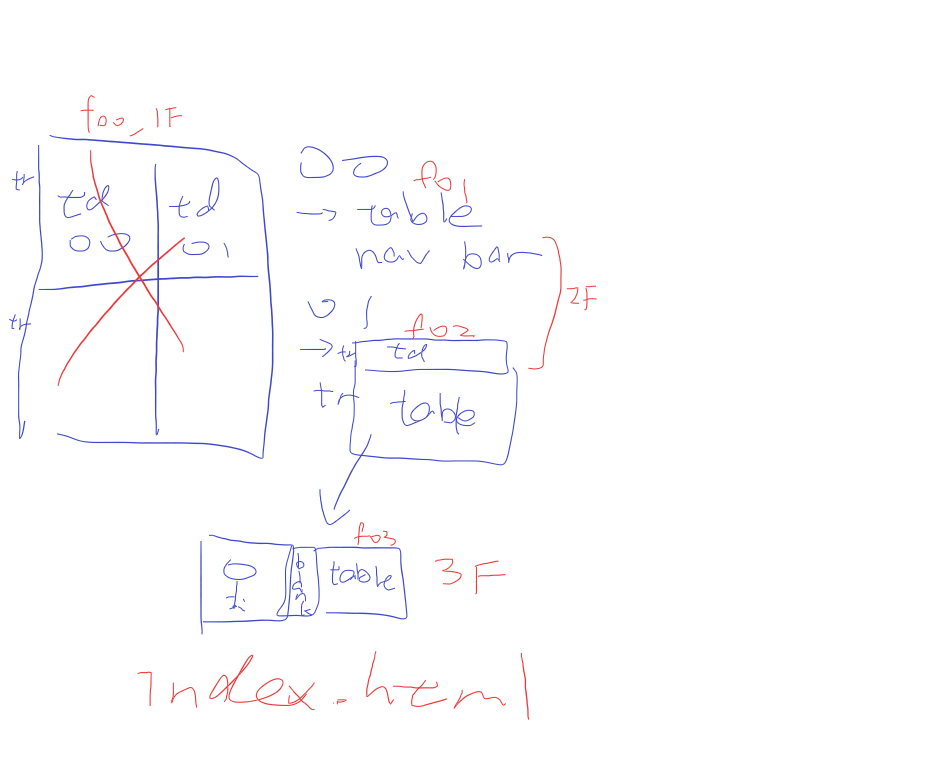 foo_1F
tr
td
td
00
01
tr
00
fo1
→ table
nav bar
2F
01
fo2
→ tr
td
tr
table
fo3
blank
table
3F
index.html